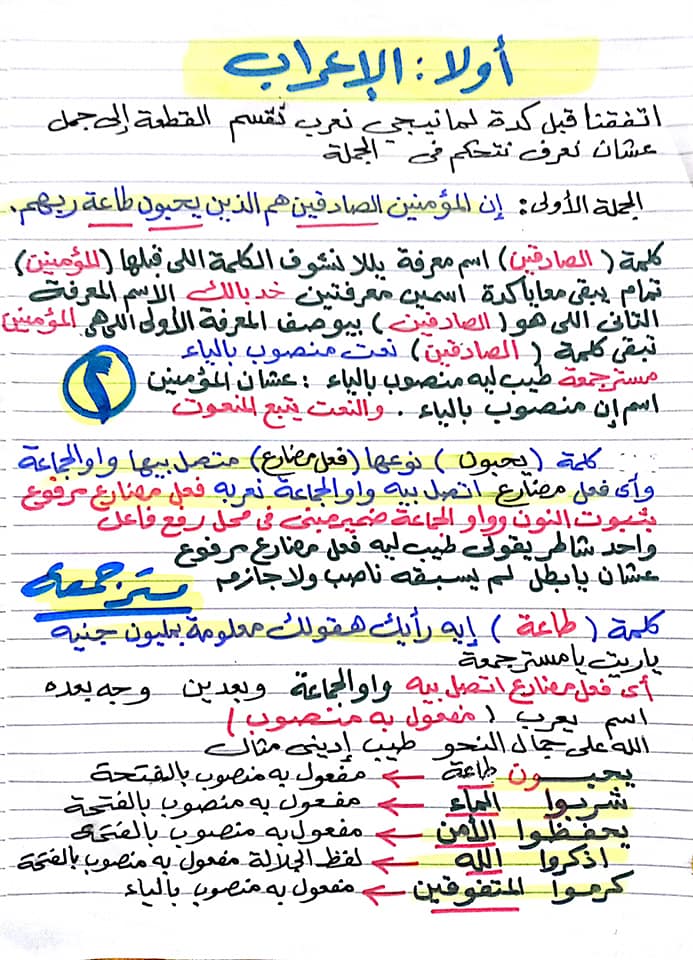 أولا : الإعراب
اتفقنا قبل كدة لما نيجي نعرب نقسم القطعة إلى جمل
عشان نعرف نتحكم فى الجملة
الجملة الأولى : إن المؤمنين الصادقين هم الذين يحبون طاعة ربهم.
كلمة ( الصادقين ) اسم معرفة يللا نشوف الكلمة اللى قبلها (المؤمنين)
تمام يبقى معايا كدة اسمين معرفتين خد بالك الاسم المعرفة
الثانى اللى هو ( الصادقين ) بيوصف المعرفة الأولى اللى هى المؤمنين
تبقى كلمة ( الصادقين ) نعت منصوب بالياء
مستر جمعة طيب ليه منصوب بالياء : عشان المؤمنين
اسم إن منصوب بالياء . والنعت يتبع المنعوت
٢
كلمة ( يحبون ) نوعها (فعل مضارع) متصل بيها واو الجماعة
وأى فعل مضارع اتصل بيه واو الجماعة نعربه فعل مضارع مرفوع
بثبوت النون وواو الجماعة ضمير مبنى فى محل رفع فاعل
واحد شاطر يقولى طيب ليه فعل مضارع مرفوع
عشان يا بطل لم يسبقه ناصب ولا جازم
مستر جمعه
كلمة ( طاعة ) إيه رأيك هقولك معلومة بمليون جنيه
ياريت يا مستر جمعة
أى فعل مضارع اتصل بيه واو الجماعة وبعدين وجه بعده
اسم يعرب ( مفعول به منصوب )
الله على جمال النحو طيب إدينى مثال
يحبـــون طاعة ← مفعول به منصوب بالفتحة
شربوا الماء ← مفعول به منصوب بالفتحة
يحفظوا الأمن ← مفعول به منصوب بالفتحة
اذكروا الله ← لفظ الجلالة مفعول به منصوب بالفتحة
كرموا المتفوقين ← مفعول به منصوب بالياء